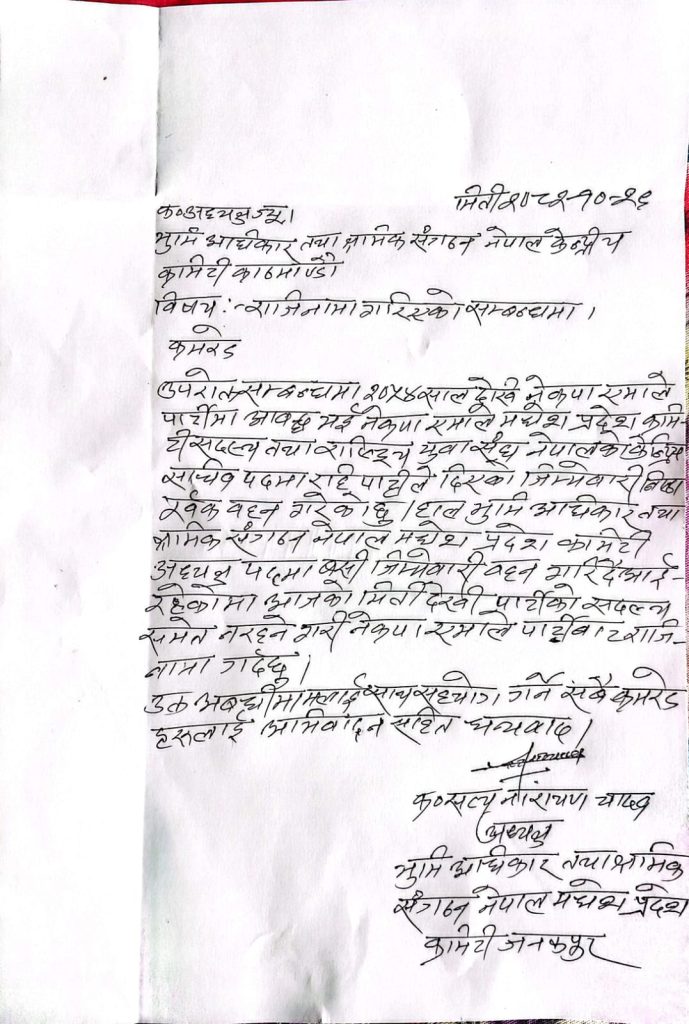 मिती २०८२-१०-२६
क० अध्यक्षज्यू।
भुमि अधिकार तथा श्रमिक संगठन नेपाल केन्द्रीय
कमिटी काठमाण्डौ
विषय :- राजिनामा गरिएको सम्बन्धमा ।
कमरेड
उपरोक्त सम्बन्धमा २०५४ साल देखि नेकपा एमाले
पार्टीमा आवद्ध भई नेकपा एमाले मधेश प्रदेश कमि-
टी सदस्य तथा राष्ट्रिय युवा संघ नेपालको केन्द्रिय
सचिव पदमा रही पार्टीले दिएको जिम्मेवारी निष्ठा
र्वक वहन गरेको छु । हाल भुमि अधिकार तथा
श्रमिक संगठन नेपाल मधेश प्रदेश कमिटी
अध्यक्ष पदमा बसी जिम्मेवारी वहन गरिदै आई-
रहेकोमा आजको मिती देखी पार्टीको सदस्य
समेत नरहने गरी नेकपा एमाले पार्टीबाट राजि-
नामा गर्दछु ।
उक्त अवधीमा मलाई साथ सहयोग गर्ने सबै कमरेड
हरुलाई अभिवादन सहित धन्यवाद ।
क० सत्य नारायण यादव
अध्यक्ष
भुमि अधिकार तथा श्रमिक
संगठन नेपाल मधेश प्रदेश
कमिटी जनकपुर